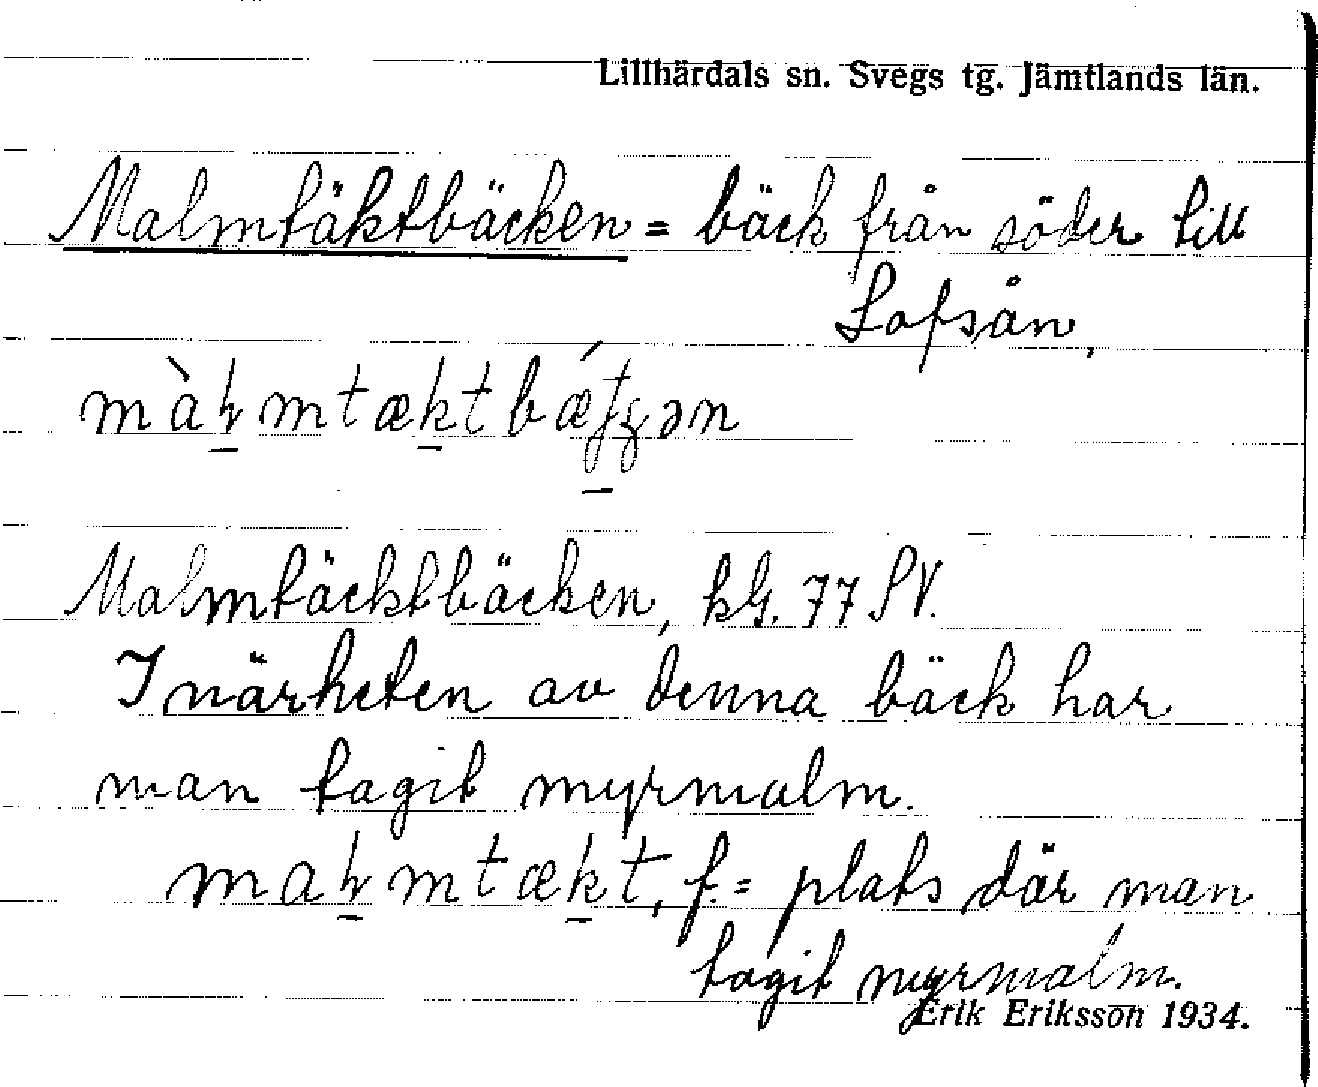 Lillhärdals sn. Svegs tg. Jämtlands län.
Malmtäktbäcken = bäck från söder till
Lofsån,
Malmtäcktbäcken, kG. 77 SV.
I närheten av denna bäck har
man tagit myrmalm.
f. = plats där man
tagit myrmalm.
Erik Eriksson 1934.